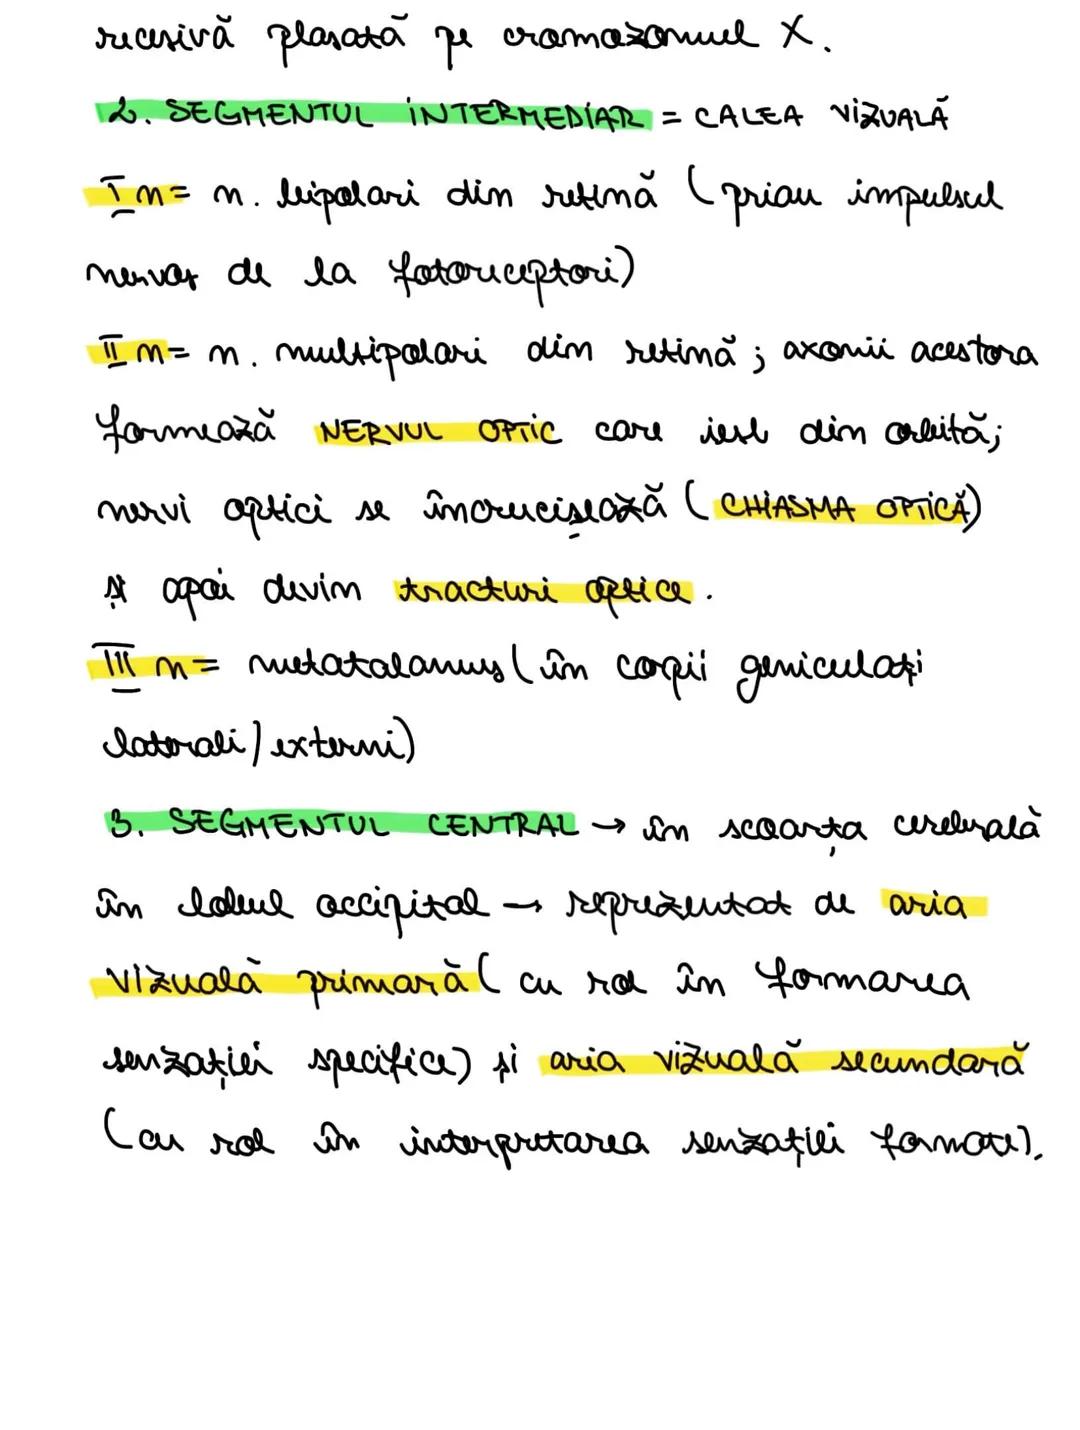 recesivă plasată pe cromozomul X.
2. SEGMENTUL INTERMEDIAR = CALEA VIZUALĂ
I n= n. bipolari din retină (priau impulsul
nervos de la fotoreceptori)
II n= n. multipolari din retină; axonii acestora
formează NERVUL OPTIC care iese din orbită;
nervi optici se încrucișează (CHIASMA OPTICĂ)
și apoi devin tracturi optice.
III n= metatalamus (în corpii geniculați
laterali/externi)
3. SEGMENTUL CENTRAL → în scoarța cerebrală
în lobul occipital → reprezentat de aria
vizuală primară (cu rol în formarea
senzației specifice) și aria vizuală secundară
(cu rol în interpretarea senzației formate).